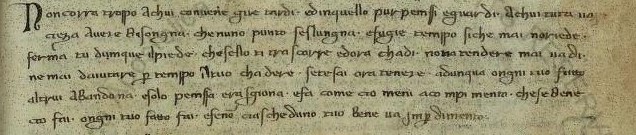 Non corra troppo achui convene gire tardi · edinquello pur pensi eguardi · Achui tutta va
cieza avere bisongna · chenuno punto seslungna · efugie tempo siche mai noriede ·
ferma tu dunque ilpiede · chesello ti trascorre edora chadi · nonatendere mai vadi
ne mai daiutare per tempo Altuo chadere · setesai ora tenere · adunqua ongni tuo fatto
altrui abandona · esolo pensa erasgiona · esa come cio meni acompimento · chese bene
cio fai · ongni tuo fatto fai · eseno ciascheduno tuo bene va impedimento ·